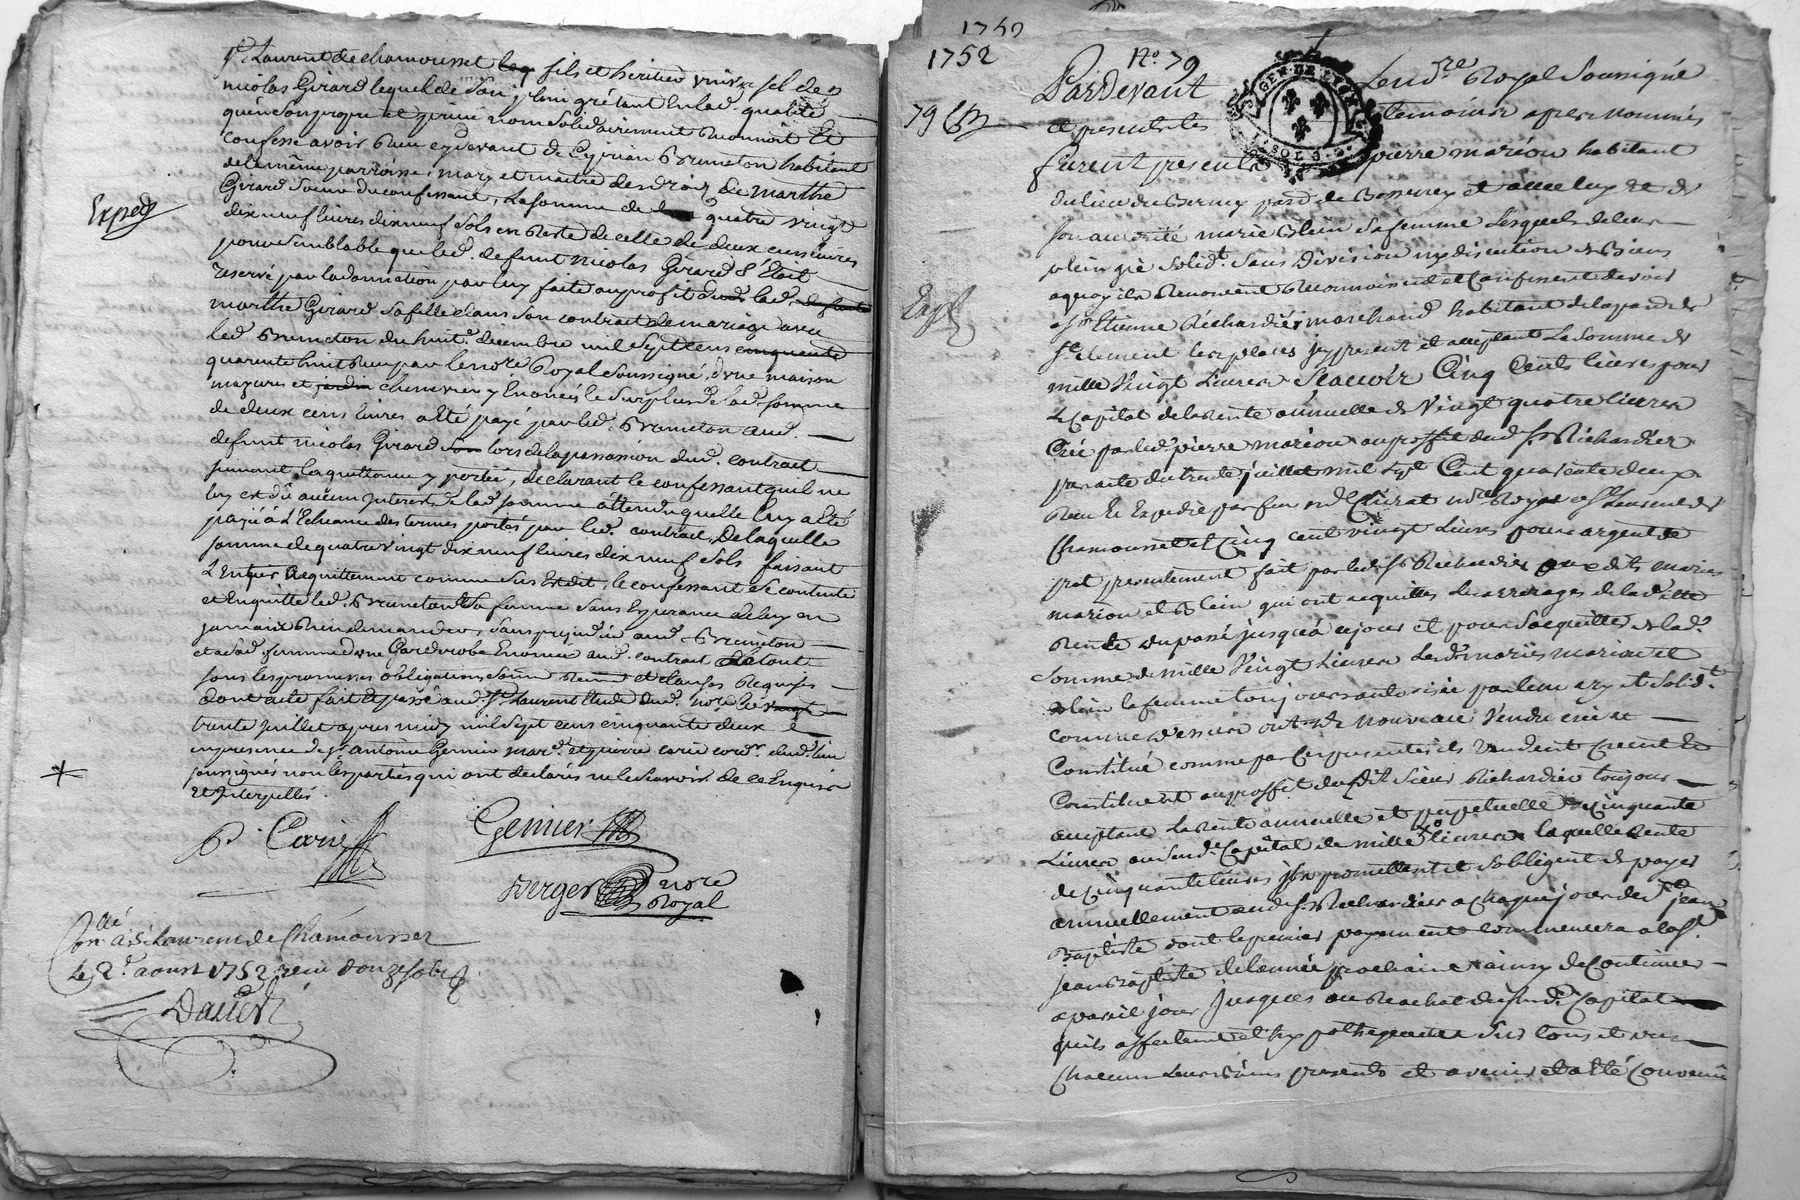 St Laurent de chamousset fils et heritier univer sel de
nicolas Girard lequel de son plein gré tant en lad. qualité
qu'en son propre et privé nom solidairement Reconnoit Et
confesse avoir Reçu cy devant de Cyprien Bruneton habitant
de la même parroisse, mary et maitre des droits de marthe
Girard soeur du confessant, la somme de quatre vingt
dix neuf livres dix neuf sols en Reste de celle de deux cens livres
pour semblable que led. defunt nicolas Girard s'étoit
reservé par la donnation par luy faite au profit de lad.
marthe Girard sa fille dans son contrat de mariage avec
led. Bruneton du huit decembre mil sept cens cinquante
quarente huit Reçu par le no.re Royal soussigné, d'une maison
mazures et jardin chenevier y Enoncés le surplus de lad. somme
de deux cens livres a été payé par led. Bruneton aud.
defunt nicolas Girard lors de la passassion dud. contrat
suivant la quittance y portée, declarant le confessant qu'il ne
luy est dû aucun Interest de lad. somme attendu quelle luy a été
payé à L'Echeance des termes portés par led. contrat, De laquelle
somme de quatre vingt dix neuf livres dix neuf sols faisant
L'Entier acquittement comme sus Est dit, le confessant se contente
et En quitte led. Bruneton et sa femme sans Esperance de luy en
jamais Rien demander, sans prejudice aud. Bruneton
et a sad. femme d'une Garderobe Enoncée aud. contrat
sous les promesses obligations et clauses Requises
dont acte fait et passé aud. St Laurent Etude dud. no.re le vingt
trente juillet apres midy mil sept cens cinquante deux
en presence de sr antoine Genier mar.d et pierre Carie
soussignés non les parties qui ont declarés ne le scavoir de ce Enquis
et Interpellés.
Exped
P. Carie
Genier
Verger no.re
Royal
Con.llé a St Laurent de Chamousset
Le 2.d aoust 1752 reçu douze sols
1752
1752
N.o 79
79
Pardevant Le no.re Royal Soussigné
et presents les temoins apres nommés
furent presents pierre marion habitant
du lieu de Bernay par.se de Bessenay et avec luy et de
son autorité marie Blein sa femme Lesquels de leur
plein gré solid.t sans division ny discution de Biens
aquoy ils Renoncent Reconnoissent et Confessent devoir
a sr Etienne Richardier marchand habitant de la par.se de
St clement les places icy present et acceptant la somme de
mille Vingt Livres Scavoir Cinq Cents livres pour
le Capital de la Rente annuelle de Vingt quatre livres
Créé par led. pierre marion au proffit dud. sr Richardier
par acte du trente juillet mil sept Cent quarente deux
Reçu Et Expedié par feu no.re Royal a St Laurent de
Chamousset et Cinq cent vingt Livres pour argent de
pret presentement fait par led. sr Richardier auxdits mariés
marion et Blein qui ont acquittes les arrerages de lad. Rente
Rente du passé jusqu'à ce jour et pour s'acquitter de lad.
Somme de mille Vingt Livres lesd. mariés marion et
Blein la femme toujours autorisée par le mary et Solid.t
comme dessus ont de nouveau Vendu créé et
Constitué comme par Ces presentes ils Vendent Creent et
Constituent au proffit dudit sieur Richardier toujours
acceptant La Rente annuelle et perpetuelle de Cinquante
Livres au sud. Capital de mille Livres laquelle Rente
de Cinquante livres ils promettent et s'obligent de payer
annuellement aud. sr Richardier a Chaque jour de St jean
Baptiste dont le premier payement commencera a la St
Jean Baptiste de l'année prochaine et ainsy de Continuer
a pareil jour jusques au Rachat dud. Capital
qu'ils affectent et hypothequent sur tous et un
Chacun leurs Biens presents et avenir et a été Convenu
GEN. DE LYON
SOLS